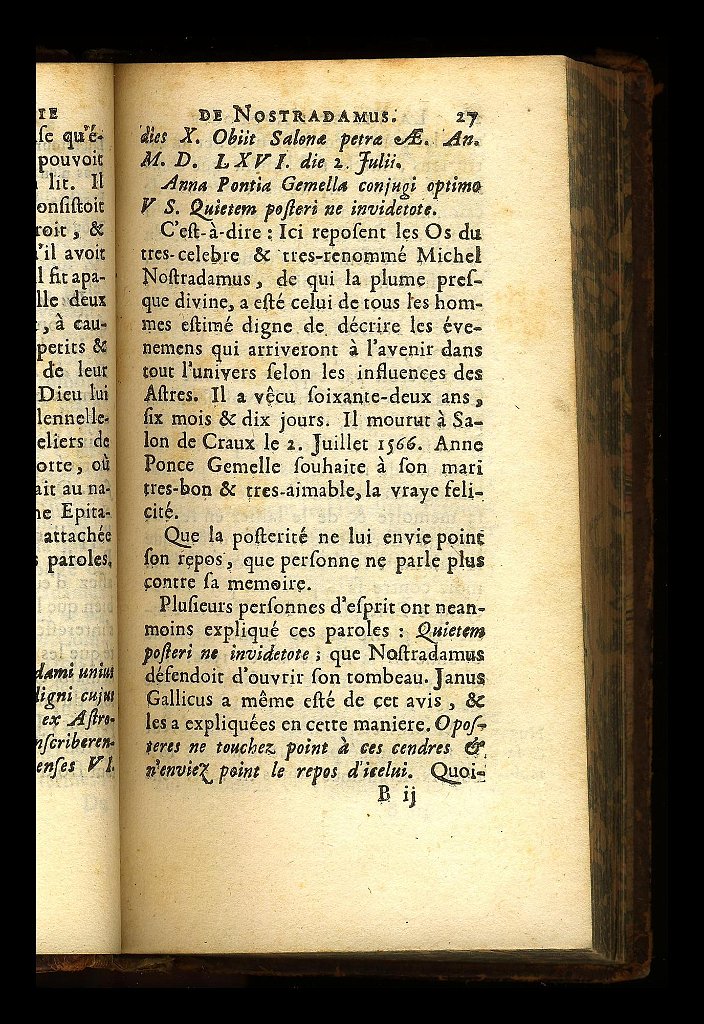 IE
se qu'é-
pouvoit
lit. Il
onſiſtoit
roit, &
'il avoit
l fit apa-
lle deux
, à cau-
petits &
de leur
Dieu lui
lennelle-
eliers de
otte, où
ait au na-
ne Epita-
attachée
paroles.
dami unius
digni cujus
ex Aſtro-
nſcriberen-
enſes VI.
DE NOSTRADAMUS. 27
dies X. Obiit Salonæ petræ Æ. An.
M. D. LXVI. die 2. Julii.
Anna Pontia Gemella conjugi optimo
V S. Quietem poſteri ne invidetote.
C'eſt-à-dire : Ici repoſent les Os du
tres-celebre & tres-renommé Michel
Noſtradamus, de qui la plume preſ-
que divine, a eſté celui de tous les hom-
mes eſtimé digne de décrire les éve-
nemens qui arriveront à l'avenir dans
tout l'univers ſelon les influences des
Aſtres. Il a vêcu ſoixante-deux ans,
ſix mois & dix jours. Il mourut à Sa-
lon de Craux le 2. Juillet 1566. Anne
Ponce Gemelle ſouhaite à ſon mari
tres-bon & tres-aimable, la vraye feli-
cité.
Que la poſterité ne lui envie point
ſon repos, que perſonne ne parle plus
contre ſa memoire.
Pluſieurs perſonnes d'eſprit ont nean-
moins expliqué ces paroles : Quietem
poſteri ne invidetote ; que Noſtradamus
défendoit d'ouvrir ſon tombeau. Janus
Gallicus a même eſté de cet avis, &
les a expliquées en cette maniere. O poſ-
teres ne touchez point à ces cendres &
n'enviez point le repos d'icelui. Quoi-
B ij